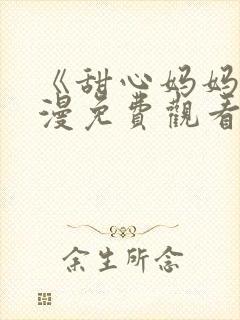 《甜心妈妈
漫免費觀看
余生所念